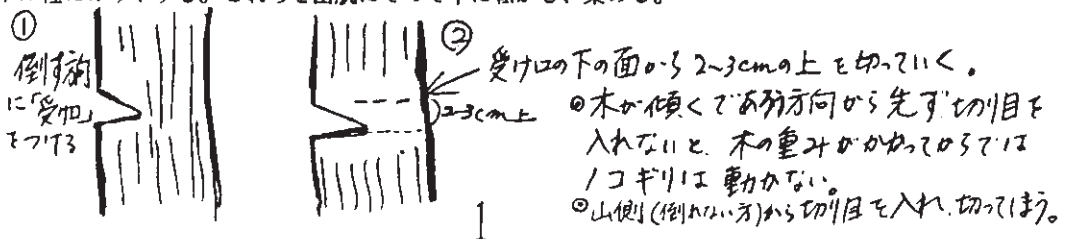 ①
倒す方向
に「受口」
をつける
②
受け口の下の面から2~3cmの上を切っていく。
2~3cm上
◎木が傾くであろう方向から先ず切り目を
入れないと、木の重みがかかってからでは
ノコギリは動かない。
◎山側(倒れない方)から切り目を入れ、切ってしまう。